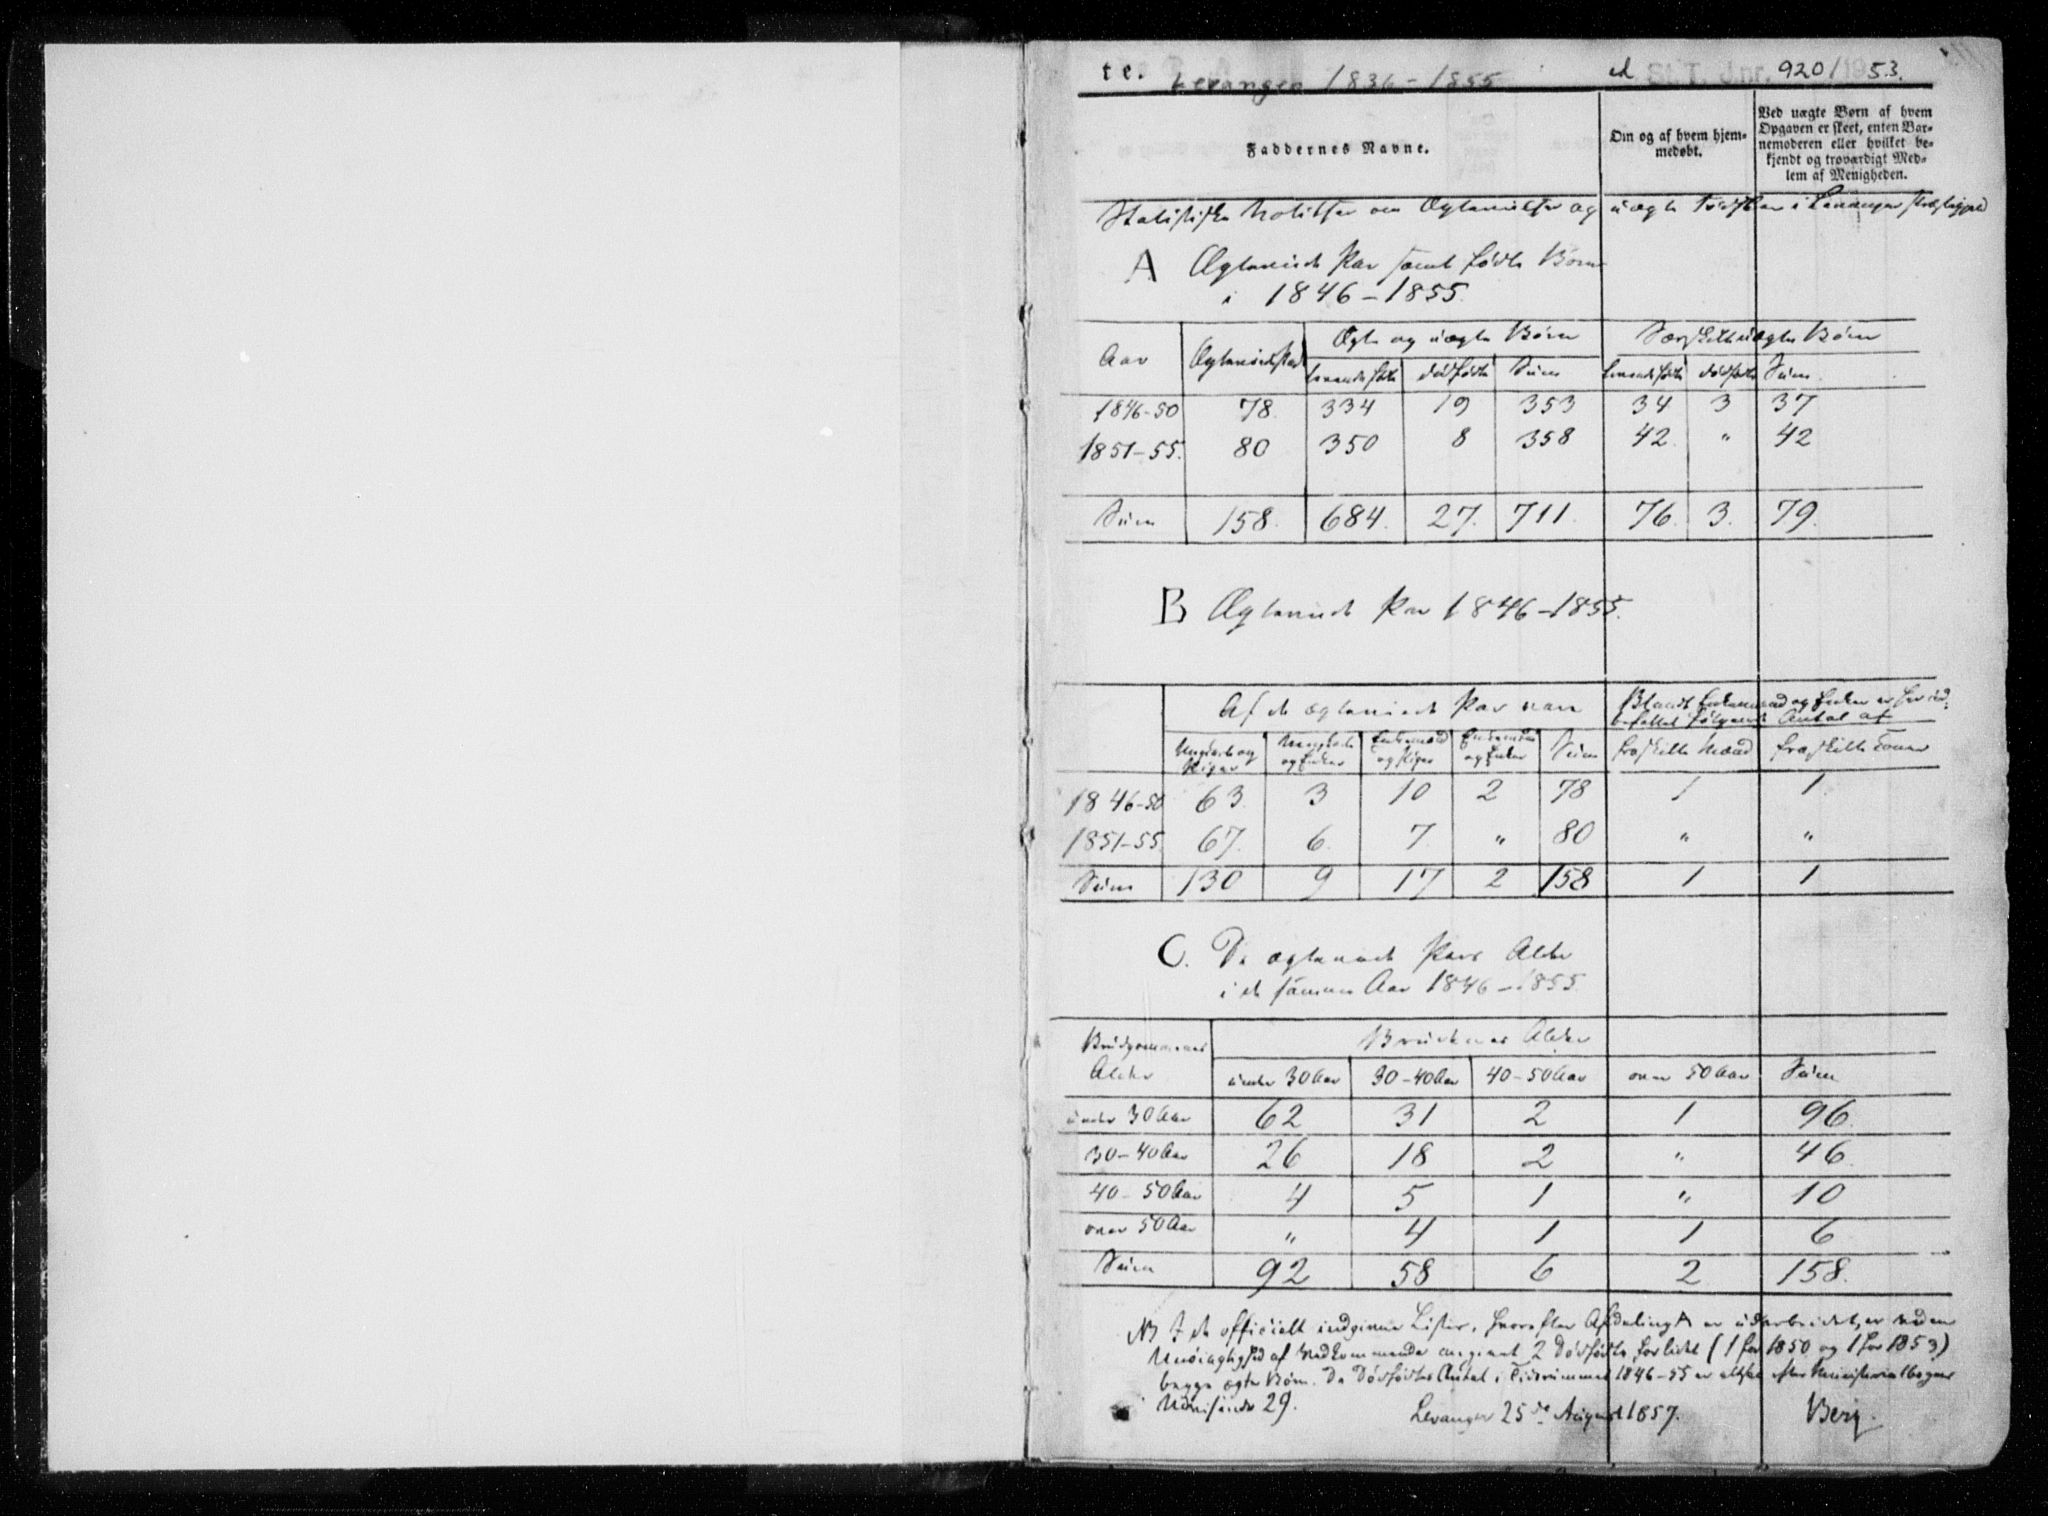 te. Levanger 1836-1855 St. T. J.nr. 920/1953.
Faddernes Navne.
Om og af hvem hjem-
medøbt.
Ved uægte Børn af hvem
Opgaven er skeet, enten Bar-
nemoderen eller hvilket be-
kjendt og troværdigt Med-
lem af Menigheden.
Statistiske Notitser om Ægtevielser og uægte Fødsler i Levanger Præstegjeld
A Ægteviede Par samt fødte Børn
i 1846-1855.
Aar Ægteviede Par Ægte og uægte Børn Særskilt uægte Børn
levendefødte dødfødte Sum levendefødte dødfødte Sum
1846-50 78. 334 19 353 34 3 37
1851-55. 80 350 8 358 42. " 42
Sum 158. 684. 27. 711. 76. 3. 79.
B Ægteviede Par 1846-1855.
Af de ægteviede Par vare Blandt Enkemænd og Enker er her ind-
befattet følgende Antal af
Ungkarle og Ungkarle Enkemænd Enkemænd Sum fraskilte Mænd fraskilte Koner
Piger og Enker og Piger og Enker
1846-50 63. 3 10 2 78 1 1
1851-55. 67. 6. 7. " 80 " "
Sum 130 9 17 2 158 1 1
C. De ægteviede Pars Alder
i de samme Aar 1846-1855.
Brudgommenes Brudenes Alder
Alder under 30 Aar 30-40 Aar 40-50 Aar over 50 Aar Sum
under 30 Aar 62 31 2 1 96.
30-40 Aar 26 18 2 " 46.
40-50 Aar 4 5 1 " 10
over 50 Aar " 4 1 1 6
Sum 92 58 6 2 158.
NB I de officielt indgivne Lister, hvorefter Afdeling A er udarbeidet, er ved en
Unøiagtighed af Vedkommende angivet 2 Dødfødte for lidet (1 for 1850 og 1 for 1853)
begge ægte Børn. De Dødfødtes Antal i Tidsrummet 1846-55 er altsaa efter Ministerialbogens
Udvisende 29.
Levanger 25de August 1857. Berg.